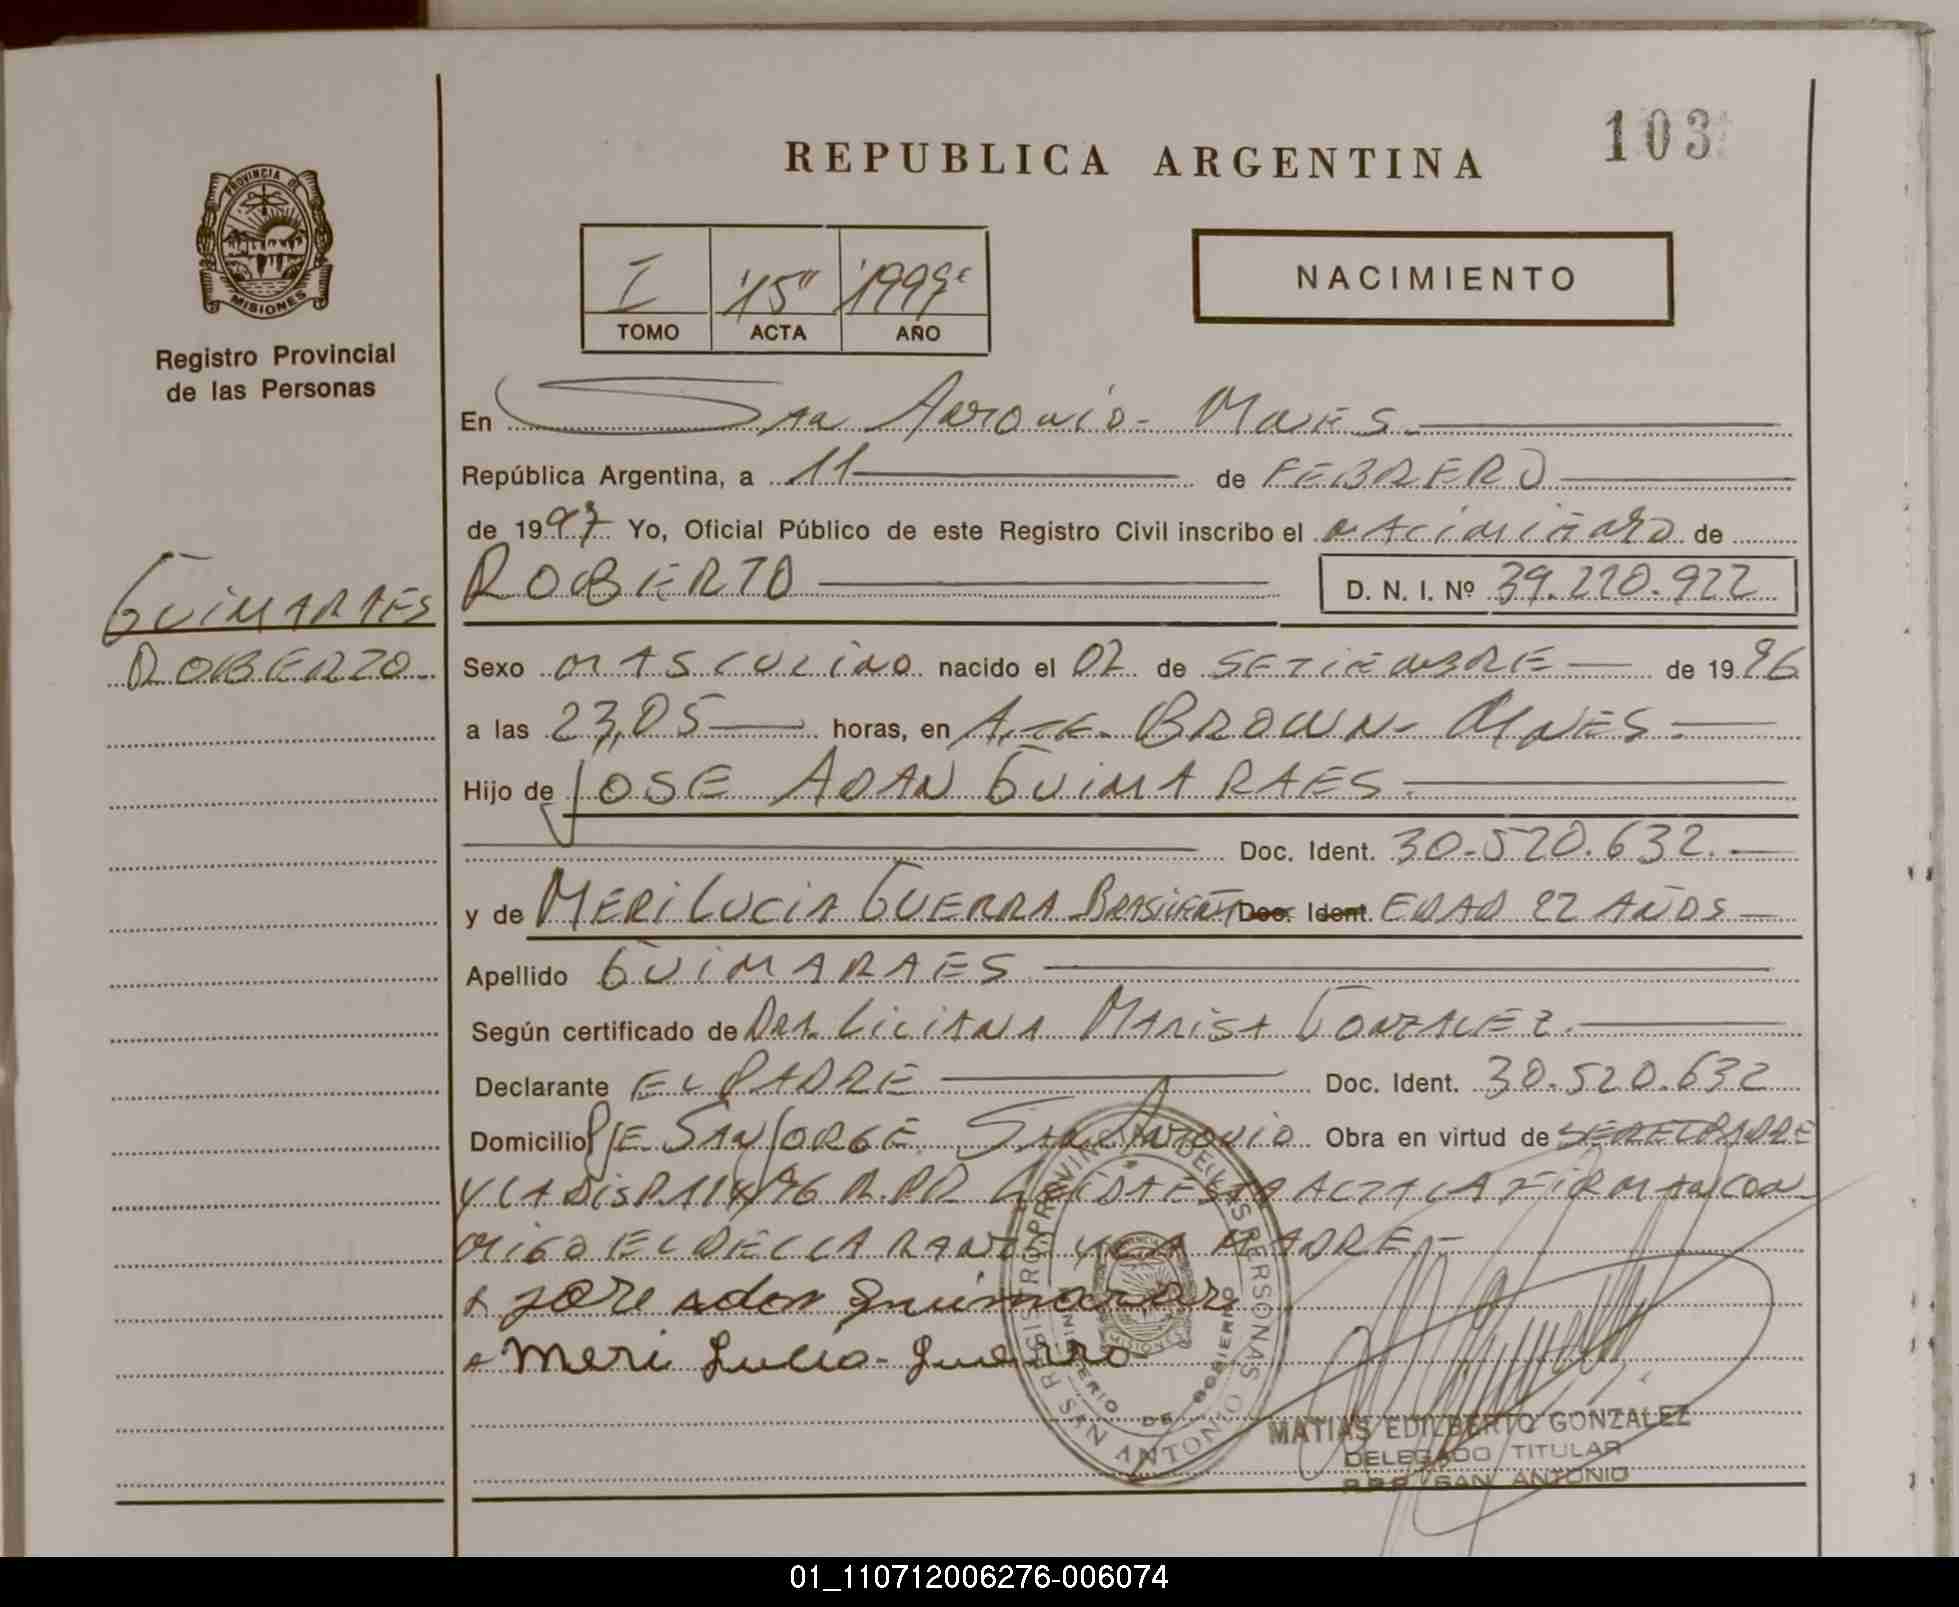 103
REPUBLICA ARGENTINA
PROVINCIA DE MISIONES
Registro Provincial
de las Personas
I "15" "1997"
TOMO ACTA AÑO
NACIMIENTO
En San Antonio - Mnes.
República Argentina, a 11 de FEBRERO
de 1997 Yo, Oficial Público de este Registro Civil inscribo el nacimiento de
GUIMARAES
ROBERTO
ROBERTO D. N. I. Nº 39.220.922
Sexo MASCULINO nacido el 02 de SETIEMBRE de 1996
a las 23,05 horas, en Alte. BROWN - MNES.
Hijo de JOSE ADAN GUIMARAES.
Doc. Ident. 30.520.632.
y de MERI LUCIA GUERRA BRASILEÑA Doc. Ident. EDAD 22 AÑOS
Apellido GUIMARAES
Según certificado de Dra. Liliana Marisa Gonzalez.
Declarante EL PADRE Doc. Ident. 30.520.632
Domicilio Pje San Jorge San Antonio Obra en virtud de SER EL PADRE
Y LA DISP. 114/96 R.P.P. LEIDA ESTA ACTA LA FIRMAN CON
MIGO EL DECLARANTE Y LA MADRE.-
jose adan guimaraes
meri lucia guerra
REGISTRO PROVINCIAL DE LAS PERSONAS
MINISTERIO DE GOBIERNO
MISIONES
SAN ANTONIO
MATIAS EDILBERTO GONZALEZ
DELEGADO TITULAR
R.P.P. SAN ANTONIO
01_110712006276-006074